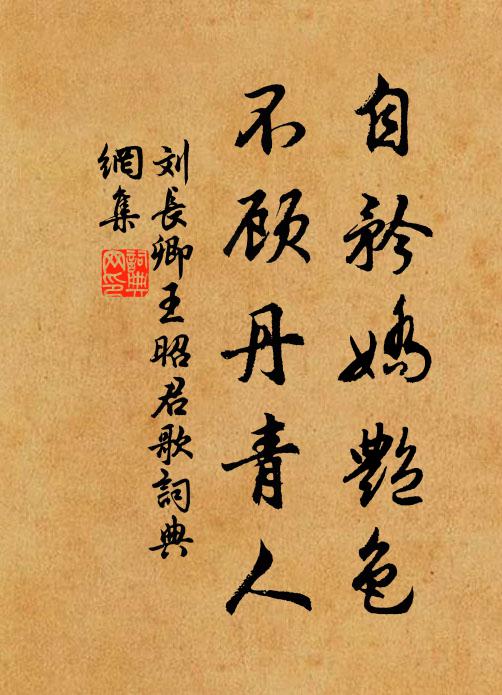 自矜嬌艷色
不顾丹青人
刘長卿王昭君歌詞典
網集
詞典
网印